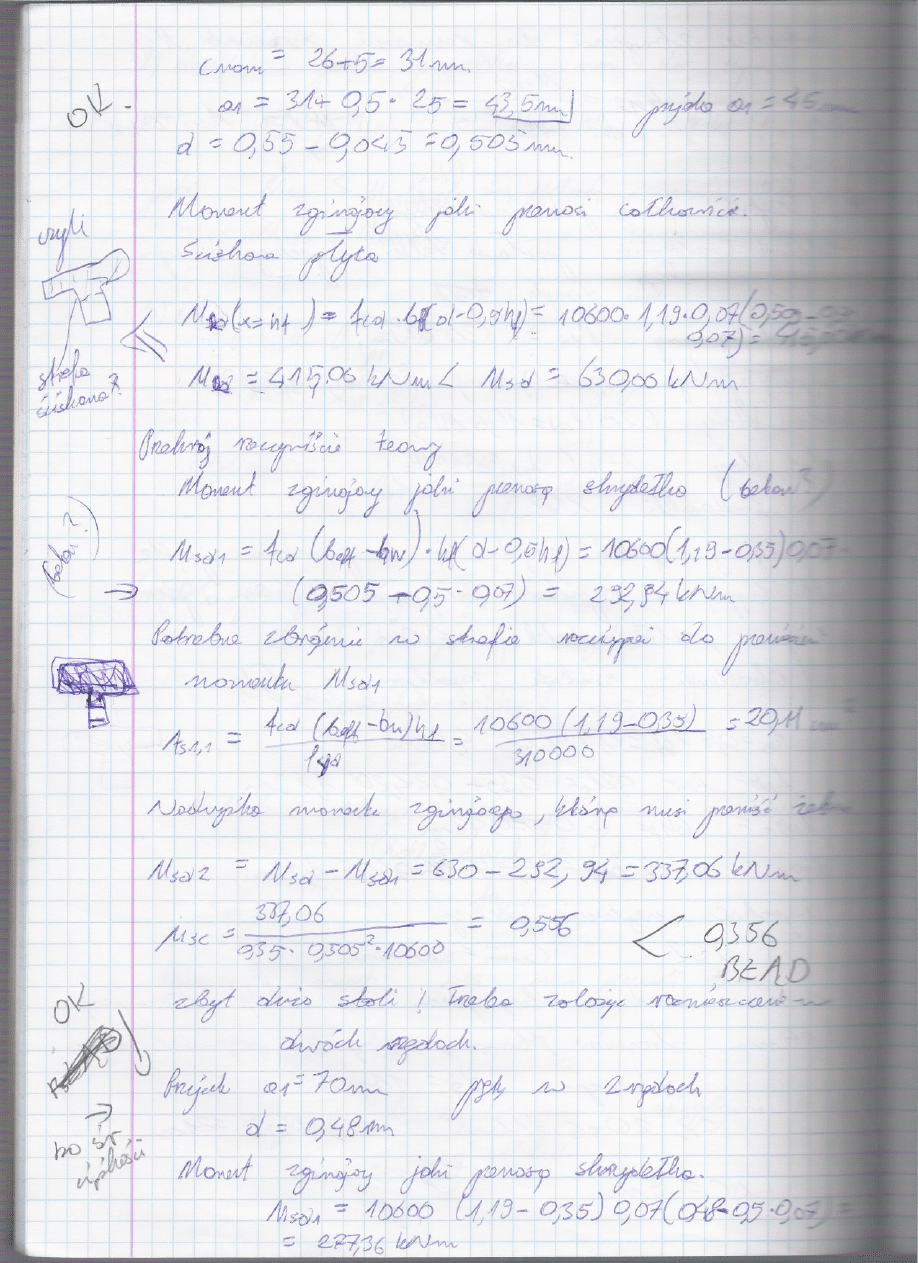 Cnom = 26+5 = 31 mm.
OK.
a1 = 31+ 0,5 · 25 = 43,5mm
a1 = 45
d = 0,55 - 0,045 = 0,505 mm.
Moment zginający jaki przenosi całkowicie
czyli
ściskana płyta
(x=hf) = fcd · (d-0,5hf) = 10600 · 1,19 · 0,07(0,505
0,07) =
strefa
ściskana?
= 415,06 kNm < Msd = 630,00 kNm
Przekrój rzeczywiście teowy
Moment zginający jaki przenoszą skrzydełka (beton?)
(beton?)
Msd1 = fcd (beff - bw) · hf (d - 0,5hf) = 10600 (1,19 - 0,35) 0,07
(0,505 - 0,5 · 0,07) = 292,94 kNm
Potrzebne zbrojenie w strefie rozciąganej do przeniesienia
momentu Msd1
As1,1 = fcd (beff - bw) hf / fyd = 10600 (1,19 - 0,35) / 310000 = 20,11
Nadwyżka momentu zginającego, którą musi przenieść
Msd2 = Msd - Msd1 = 630 - 292,94 = 337,06 kNm
Msc = 337,06 / 0,35 · 0,505² · 10600 = 0,556 < 0,356
BŁĄD
OK
zbyt dużo stali! Trzeba założyć rozmieszczenie w
dwóch rzędach.
Przyjęto a1 = 70mm pręty w 2 rzędach
d = 0,48 mm
bo śr
ciężkości
Moment zginający jaki przenoszą skrzydełka.
Msd1 = 10600 (1,19 - 0,35) 0,07 (0,48 - 0,5 · 0,07) =
= 277,36 kNm